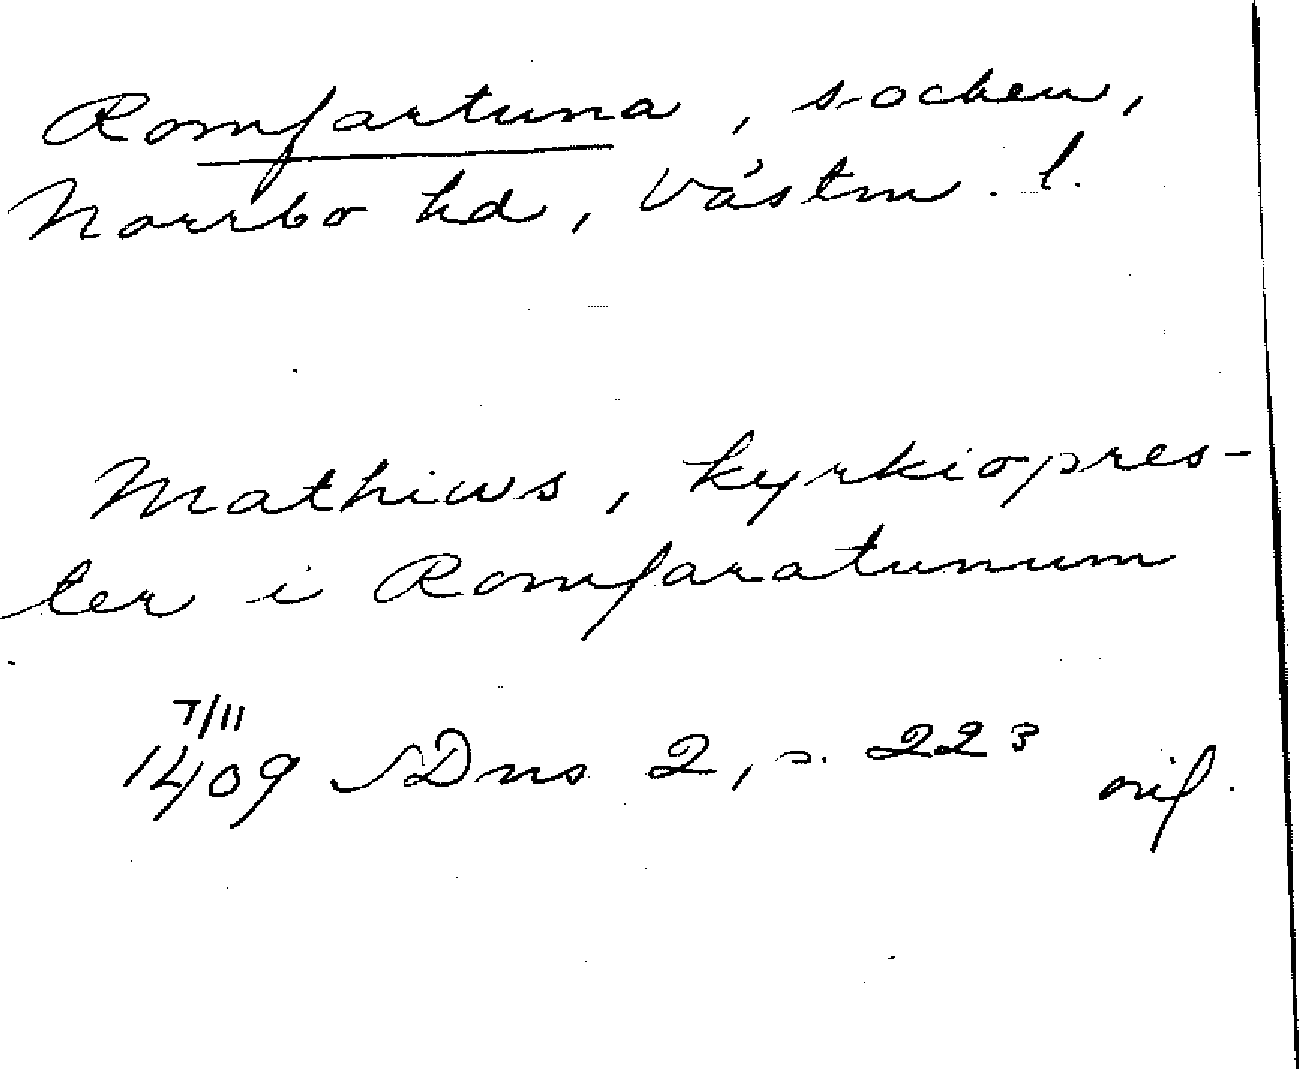 Romfartuna, socken,
Norrbo hd, Västm. l.
Mathius, kyrkiopres-
ter i Romfaratunum
7/11
1409 SDns 2, s. 223 orig.